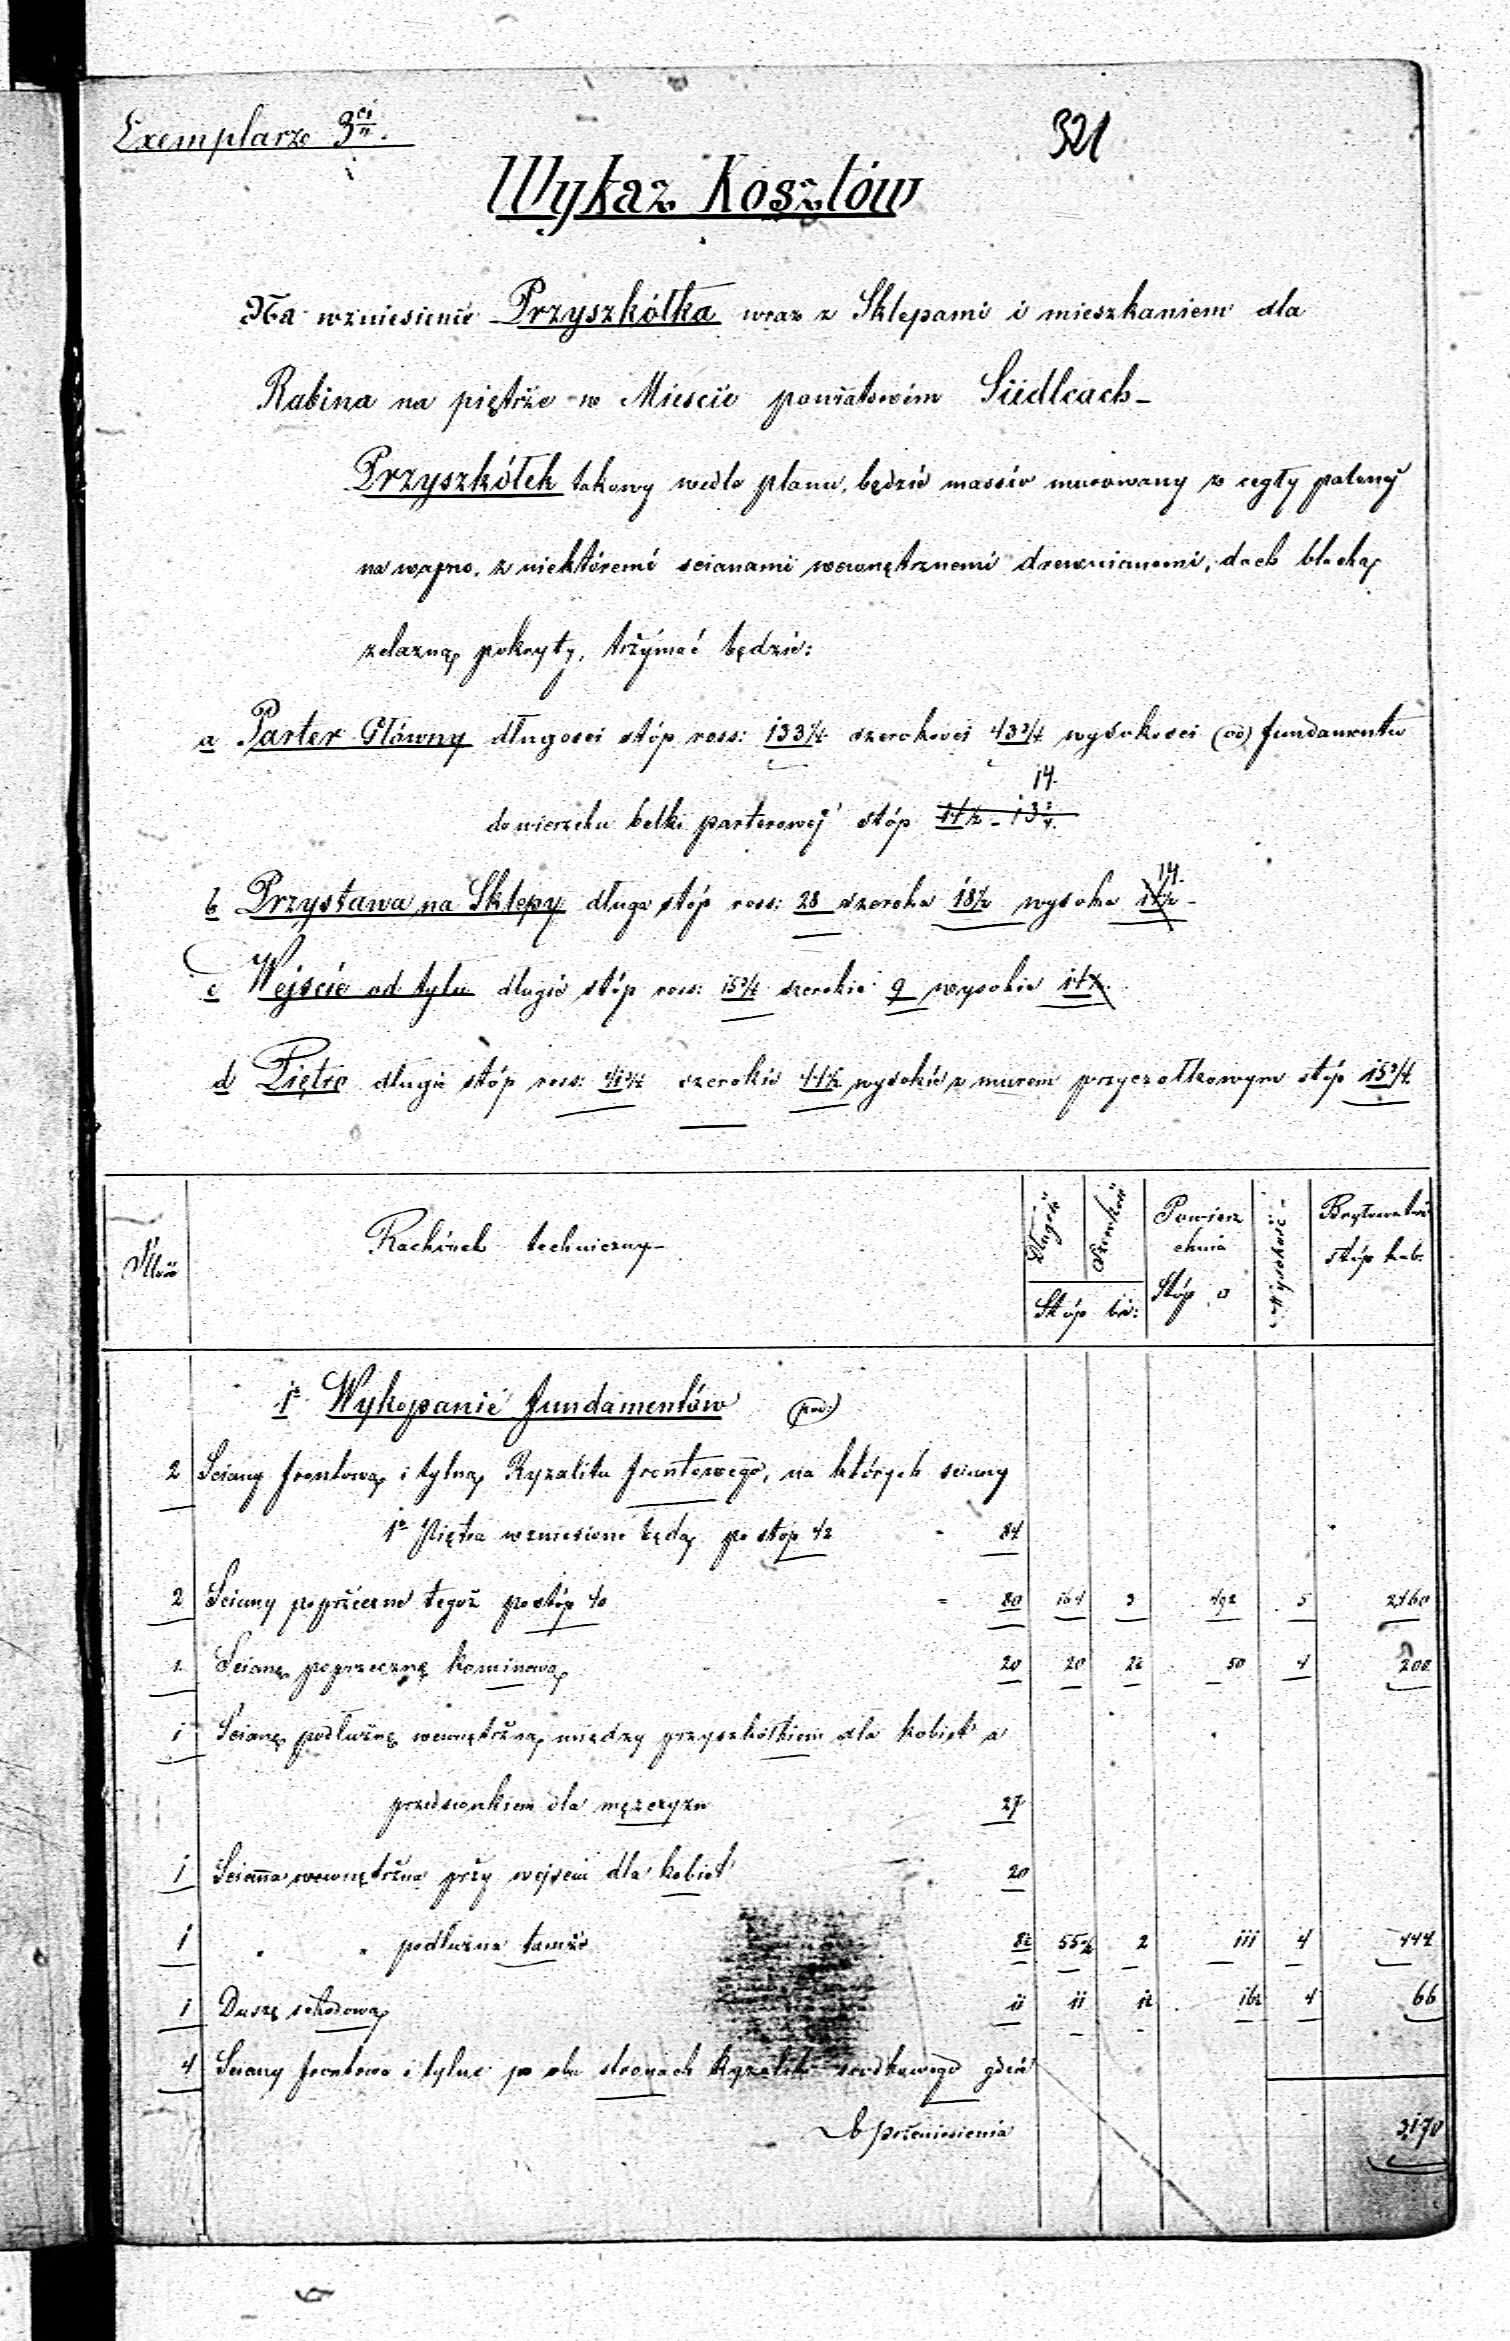 Exemplarz 3ci
321
Wykaz Kosztów
Na wzniesienie Przyszkółka wraz z Sklepami i mieszkaniem dla
Rabina na piętrze w Mieście powiatowém Siedlcach
Przyszkółek takowy wedle planu, będzie massiv murowany z cegły palonej
na wapno, z niektóremi scianami wewnętrznemi drewnianemi, dach blachą
zelazną pokryty, trzymać będzie:
a Parter Główny długosci stóp ross: 133½ szerokosci 43¾ wysokosci (od) fundamentu
14.
do wierzchu belki parterowej stóp 11½ - 13¾
14.
b Przystawa na Sklepy długa stóp ross: 28 szeroka 18½ wysoka 11½
c Wejście od tyłu długie stóp ross: 15¾ szerokie 9 wysokie
d Piętro długie stóp ross: szerokie 44½ wysokie z murem przyczołkowym stóp 15¾
Rachunek techniczny
Długość
Szerokość
Powierz
chnia
Stóp □
Wysokość
Bryłowatość
stóp kub.
Stóp bie:
1e Wykopanie fundamentów
2 Sciany frontową i tylną Ryzalitu frontowego, na których sciany
1o Piętra wzniesione będą po stóp 42 - 84
2 Sciany poprzeczne tegoż po stóp 40 = 80 164 3 492 5 2460
1 Scianę poprzeczną kominową 20 20 2½ 50 4 200
1 Scianę podłużną wewnętrzną między przyszkółkiem dla kobiet a
przedsionkiem dla męzczyzn 27
1 Scianna wewnętrzna przy wejsciu dla kobiet 20
1 " " podłużna tamże 8½ 55½ 2 111 4 444
1 Duszę schodową 11 11 1½ 16½ 4 66
4 Sciany frontowe i tylne po obu stronach Ryzalitu srodkowego gdzie
Do przeniesienia 3,170